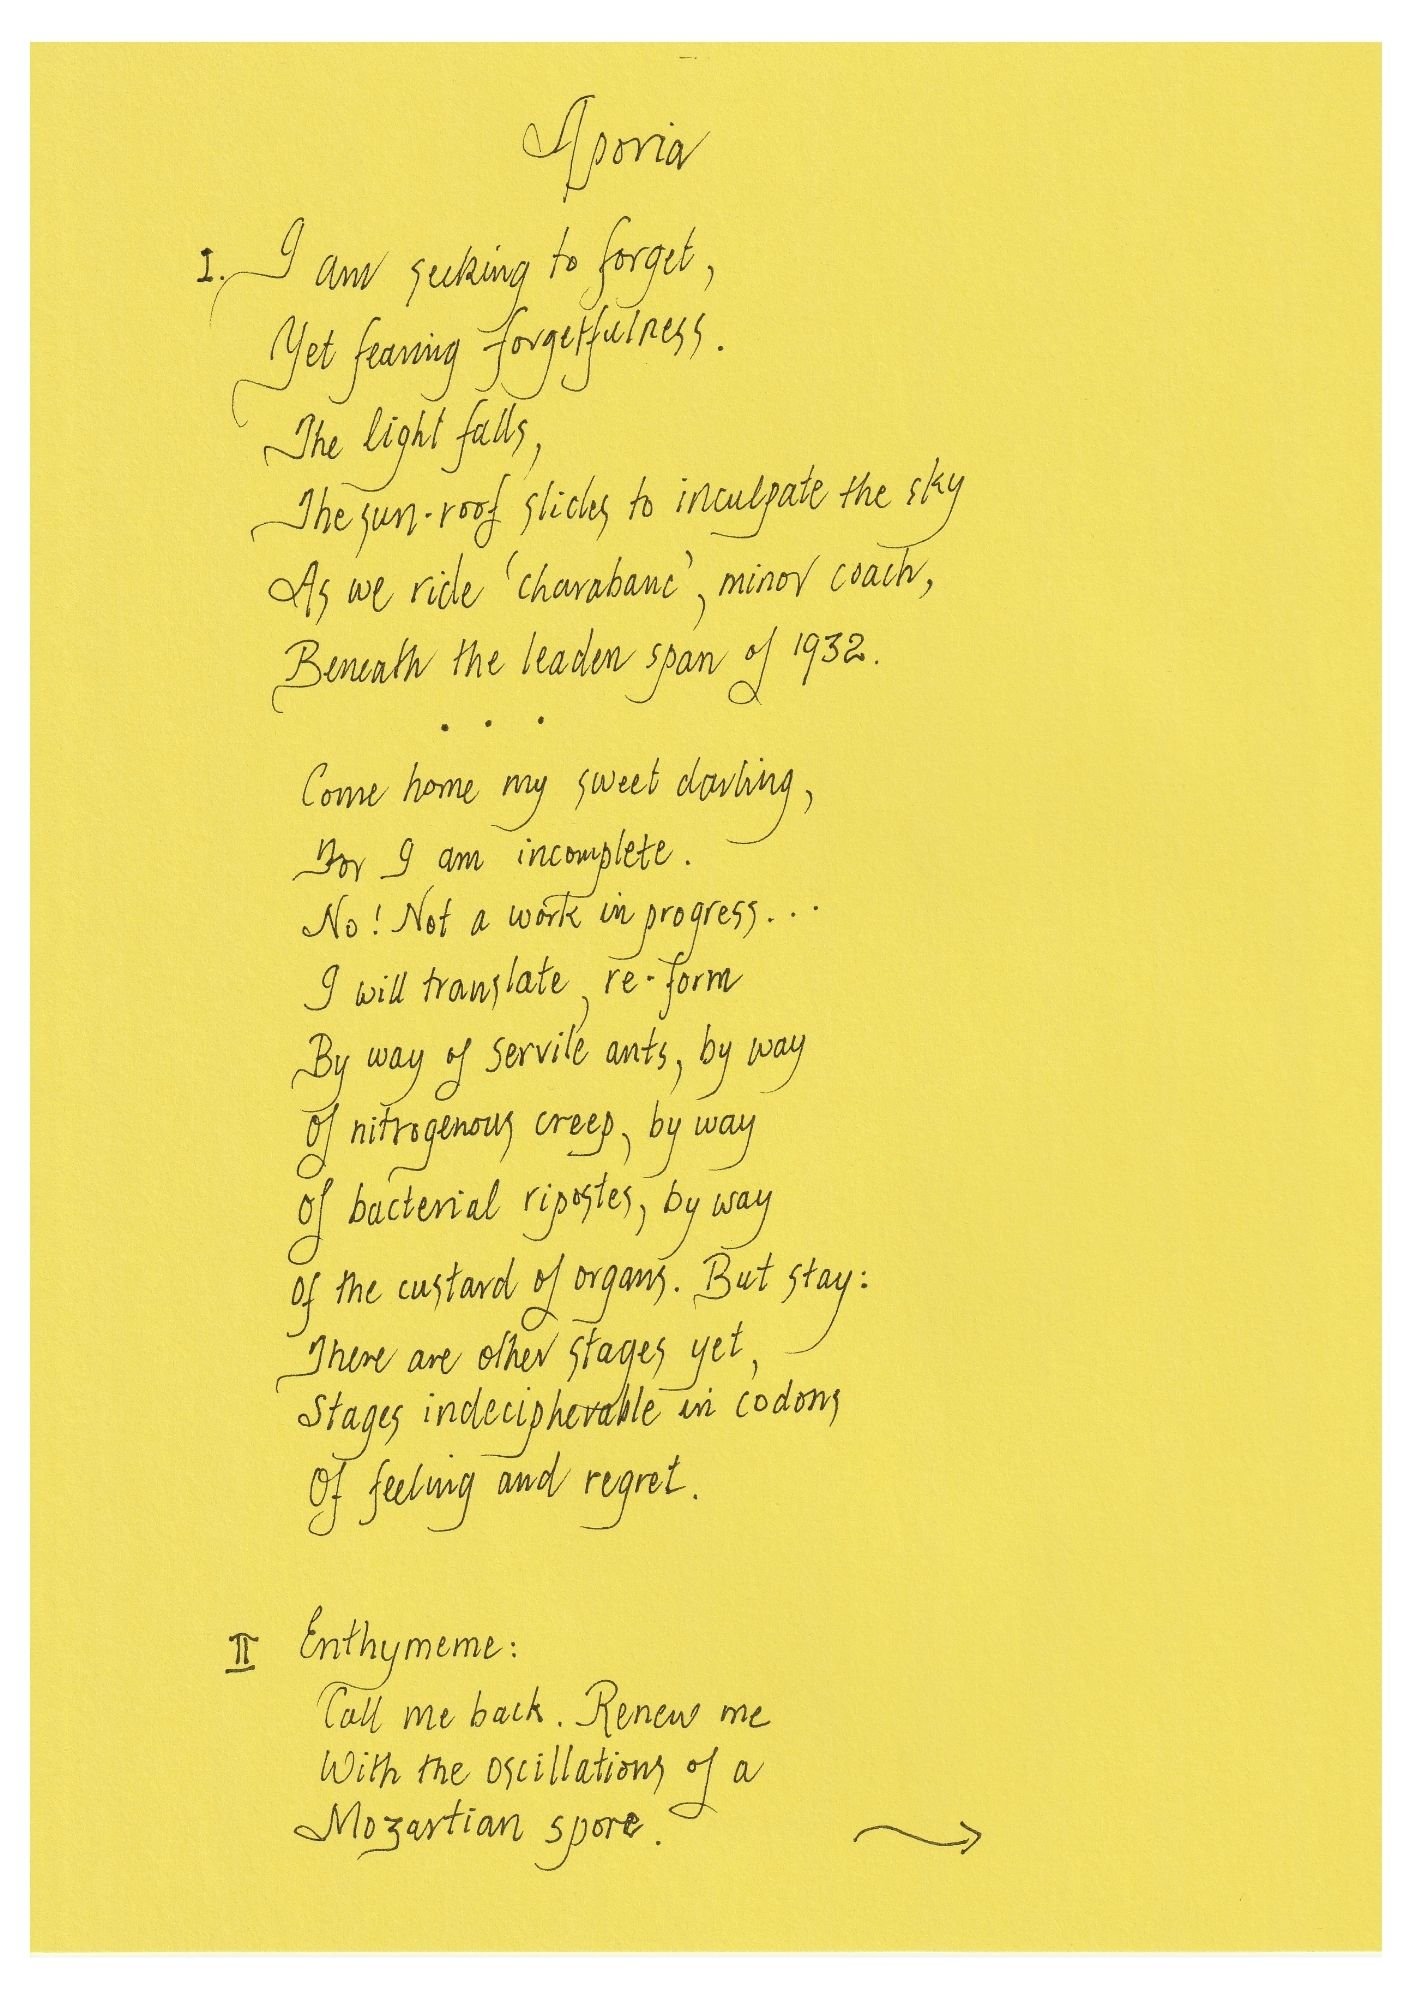 Aporia
I. I am seeking to forget,
Yet fearing forgetfulness.
The light falls,
The sun-roof slides to inculpate the sky
As we ride 'charabanc', minor coach,
Beneath the leaden span of 1932.
. . .
Come home my sweet darling,
For I am incomplete.
No! Not a work in progress...
I will translate, re-form
By way of servile ants, by way
Of nitrogenous creep, by way
Of bacterial ripostes, by way
Of the custard of organs. But stay:
There are other stages yet,
Stages indecipherable in codons
Of feeling and regret.
II Enthymeme:
Call me back. Renew me
With the oscillations of a
Mozartian spore.